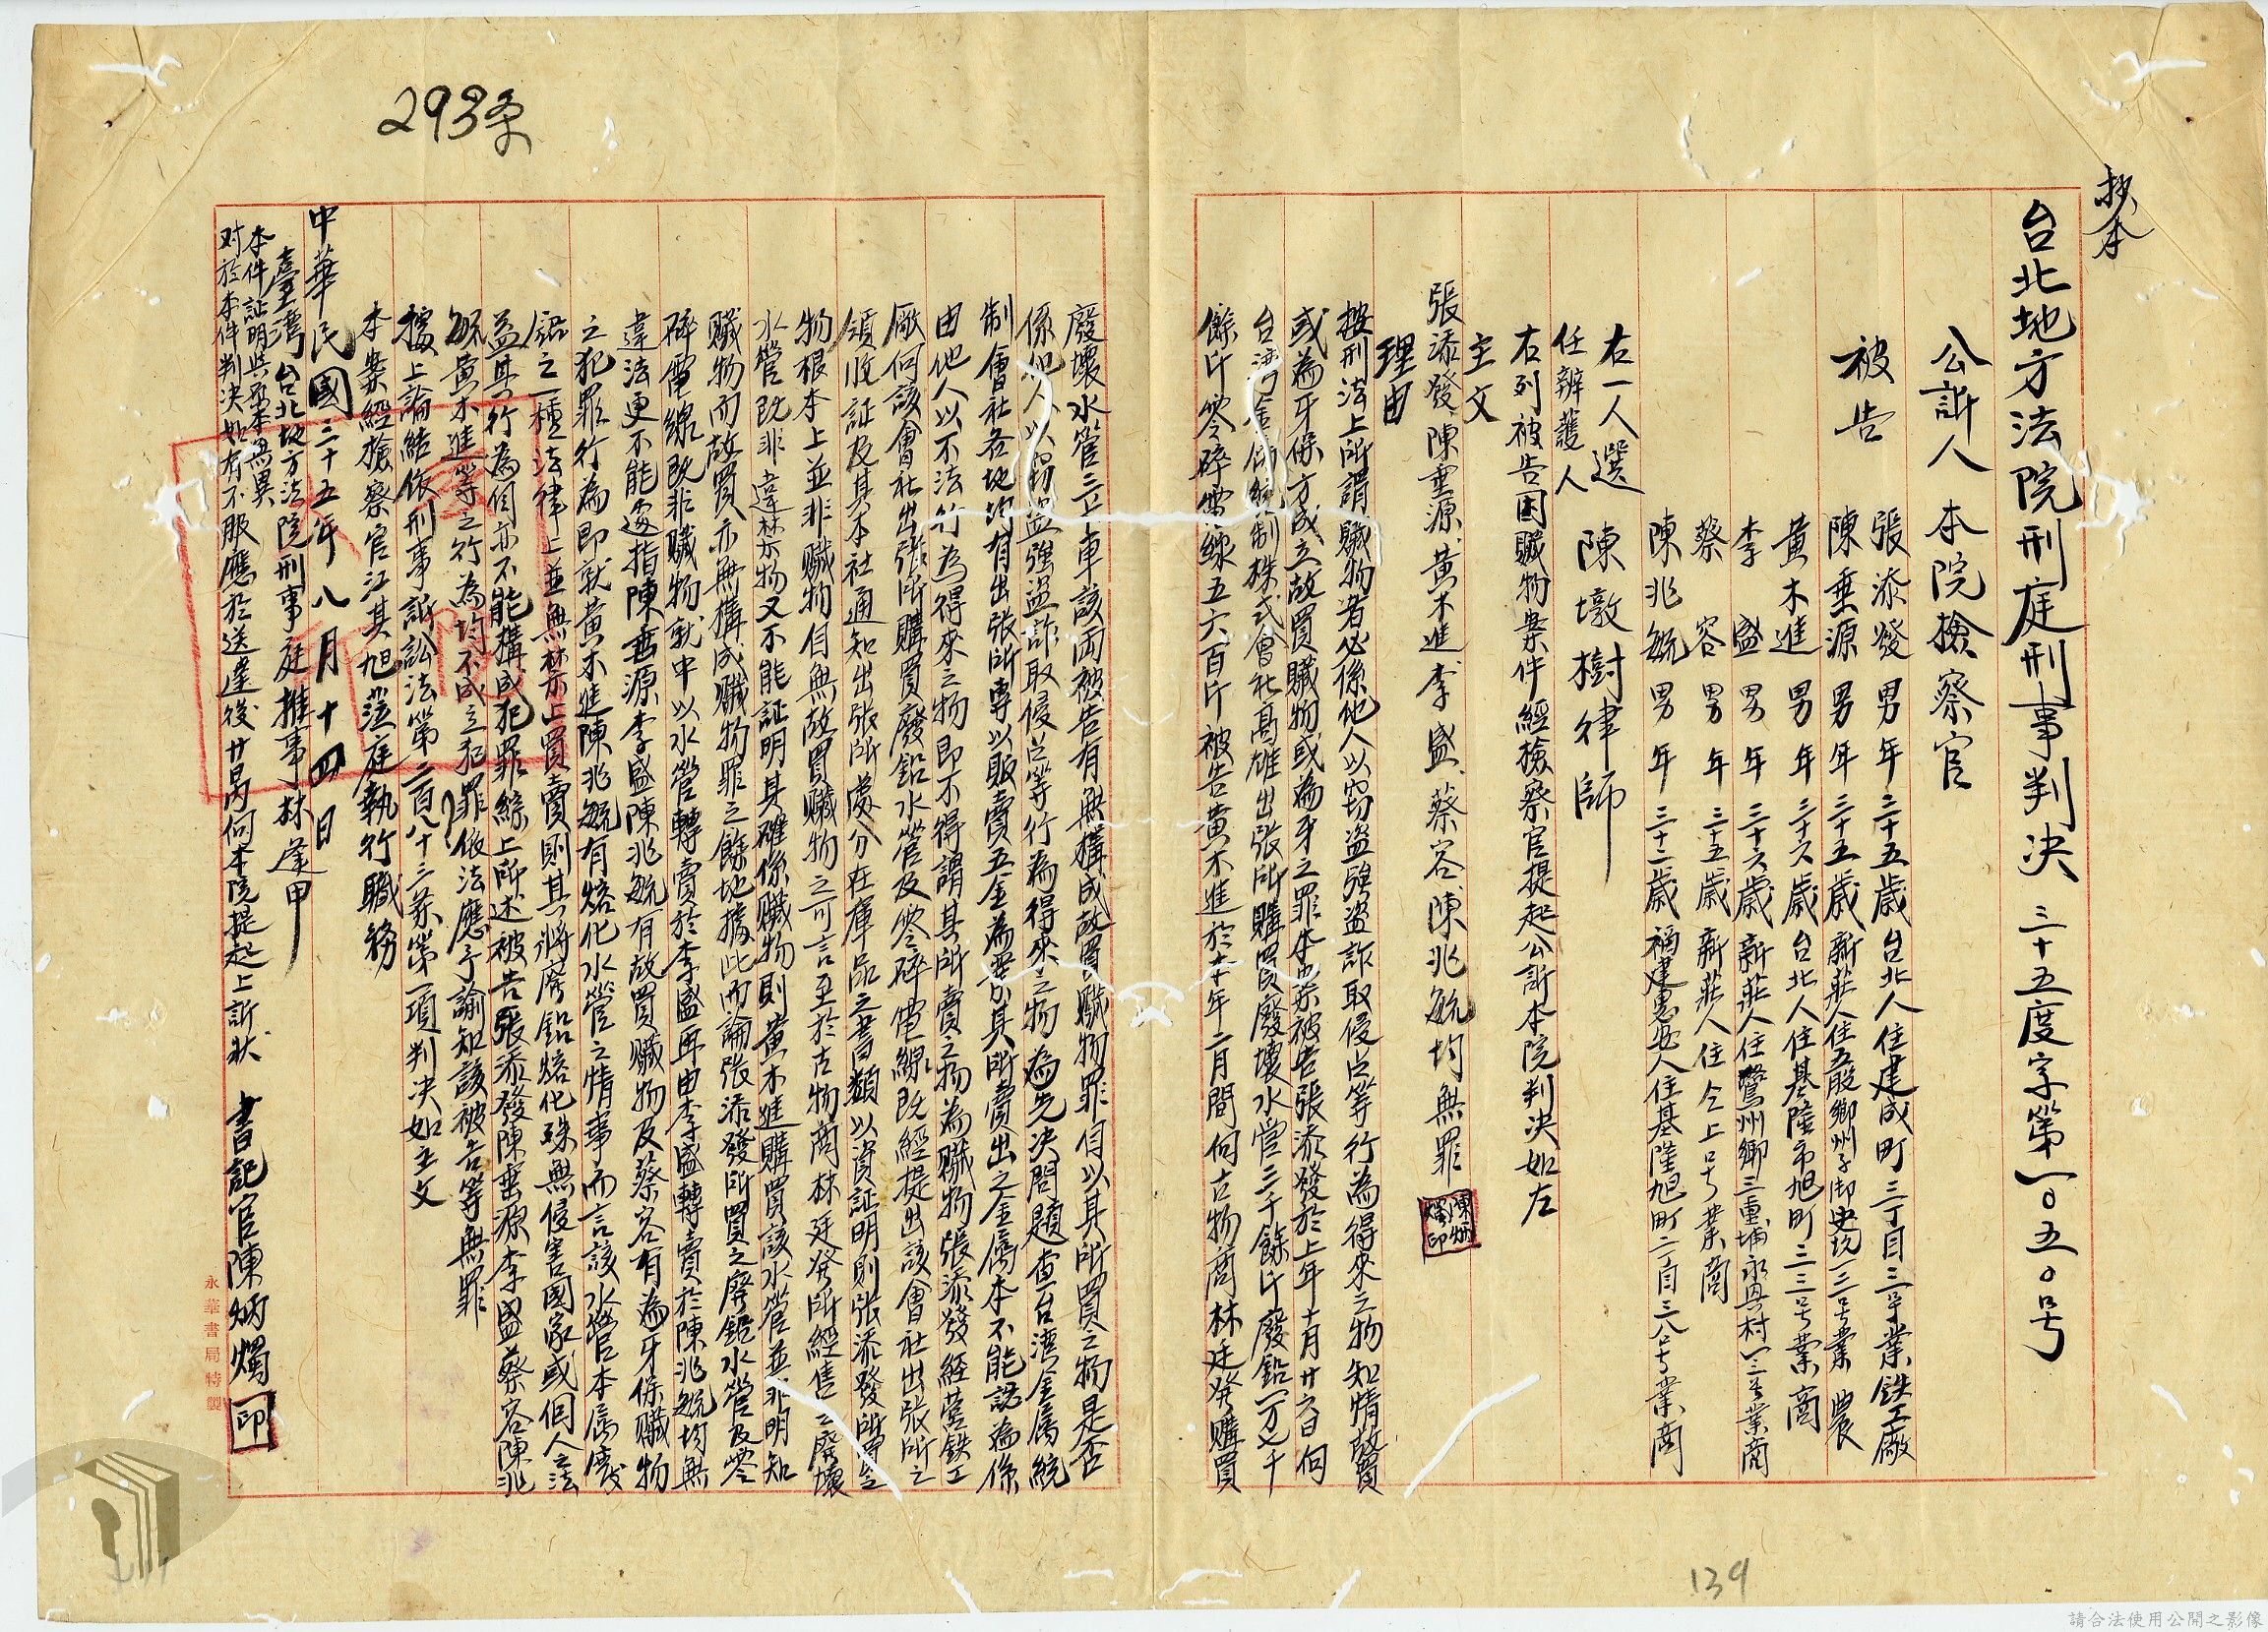 抄本
台北地方法院刑庭刑事判决 三十五度字第一〇五〇号
公訴人 本院檢察官
被告 張添發 男 年三十五歲 台北人住建成町三丁目三号業鉄工廠
陳垂源 男 年三十五歲 新莊人住五股鄉洲子御史坑一三号業農
黃木進 男 年三十六歲 台北人住基隆市旭町三三号業商
李 盛 男 年三十六歲 新莊人住鷺州鄉三重埔永興村一三号業商
蔡 容 男 年三十五歲 新莊人住仝上号業商
陳兆毓 男 年三十二歲 福建惠安人住基隆旭町二丁目三八号業商
右一人選
任辨護人 陳墩樹律師
右列被告因贓物案件經檢察官提起公訴本院判决如左
主文
張添發、陳垂源、黃木進、李盛、蔡容、陳兆毓均無罪
陳炳燭印
理由
按刑法上所謂贓物者必係他人以竊盗強盗詐取侵占等行為得來之物知情故買
或為牙保方成立故買贓物或為牙保之罪本案被告張添發於上年十月廿六日向
台湾金屬統制株式會社高雄出張所購買廢壞水管三千餘斤廢鉛一万七千
餘斤零碎電線五六百斤被告黃木進於本年二月間向古物商林廷發購買
廢壞水管三卡車該両被告有無構成故買贓物罪自以其所買之物是否
係他人以竊盗強盗詐取侵占等行為得來之物為先决問題查台湾金屬統
制會社各地均有出張所專以販賣五金為業其所賣出之金屬本不能認為係
由他人以不法行為得來之物即不得謂其所賣之物為贓物張添發經營鉄工
廠向該會社出張所購買廢鉛水管及零碎電線既經提出該會社出張所之
領收証及其本社通知出張所處分在庫品之書類以資証明則張添發所買之
物根本上並非贓物自無故買贓物之可言至於古物商林廷發所經售之廢壞
水管既非違禁物又不能証明其確係贓物則黃木進購買該水管並非明知
贓物而故買亦無構成贓物罪之餘地據此而論張添發所買之廢鉛水管及零
碎電線既非贓物就中以水管轉賣於李盛再由李盛轉賣於陳兆毓均無
違法更不能遽指陳垂源李盛陳兆毓有故買贓物及蔡容有為牙保贓物
之犯罪行為即就黃木進陳兆毓有熔化水管之情事而言該水管本屬廢
鉛之一種法律上並無禁止買賣則其将廢鉛熔化殊無侵害國家或個人之法
益其行為自亦不能構成犯罪綜上所述被告張添發陳垂源李盛蔡容陳兆
毓黃木進等之行為均不成立犯罪依法應予諭知該被告等無罪
據上論結依刑事訴訟法第二百八十三条第一項判决如主文
本案經檢察官江其旭蒞庭執行職務
中華民國三十五年八月十四日
臺灣台北地方法院刑事庭推事林逢甲
本件証明與原本無異
对於本件判决如有不服應於送達後廿日內向本院提起上訴狀 書記官陳炳燭 印
293条
139
永華書局特製
請合法使用公開之影像